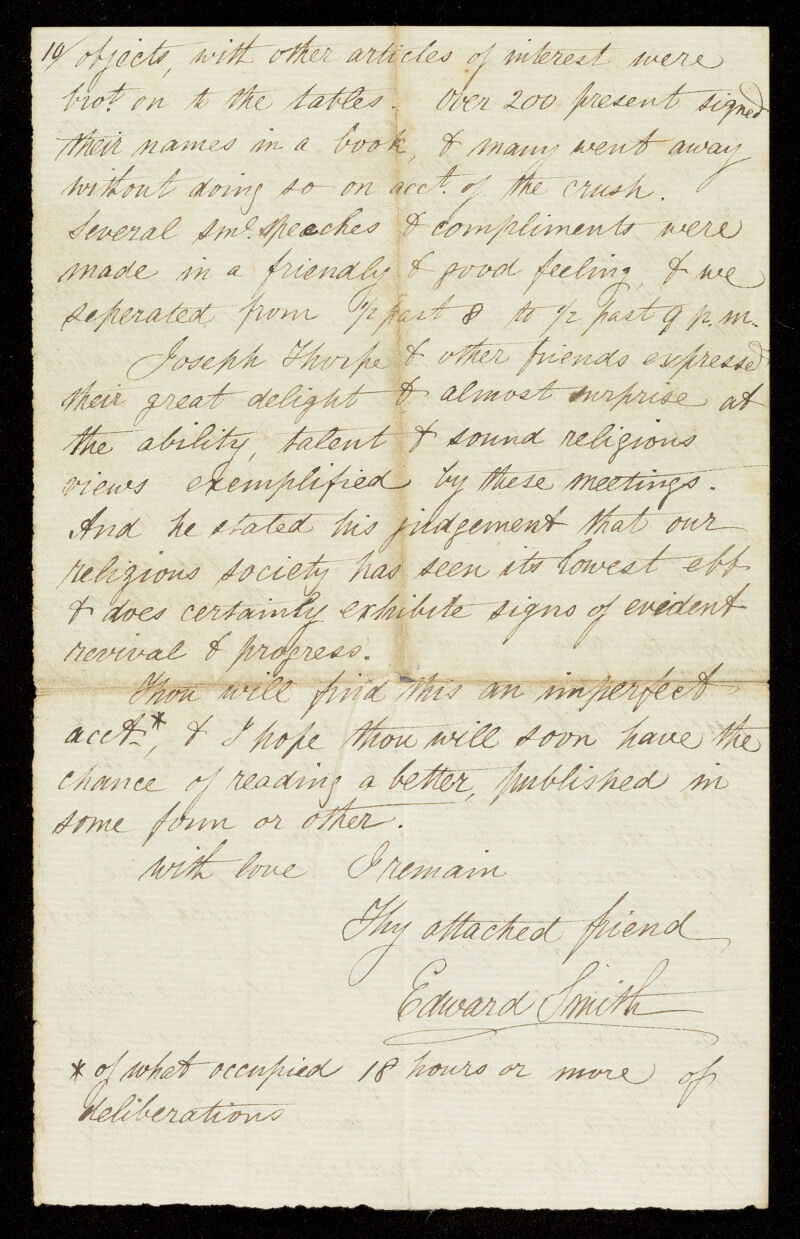 10/ objects, with other articles of interest were
brot. on to the tables. Over 200 present signed
their names in a book, & many went away
without doing so on acct. of the crush.
Several sml. speeches & compliments were
made in a friendly & good feeling, & we
seperated from 1/2 past 8 to 1/2 past 9 p.m.
Joseph Thorpe & other friends expressed
their great delight & almost surprise at
the ability, talent & sound religious
views exemplified by these meetings.
And he stated his judgement that our
religious society has seen its lowest ebb
& does certainly exhibite signs of evident
revival & progress.
Thou will find this an imperfect
acct.*, & I hope thou will soon have the
chance of reading a better, published in
some form or other.
With love I remain
Thy attached friend
Edward Smith
* of what occupied 18 hours or more of
deliberations